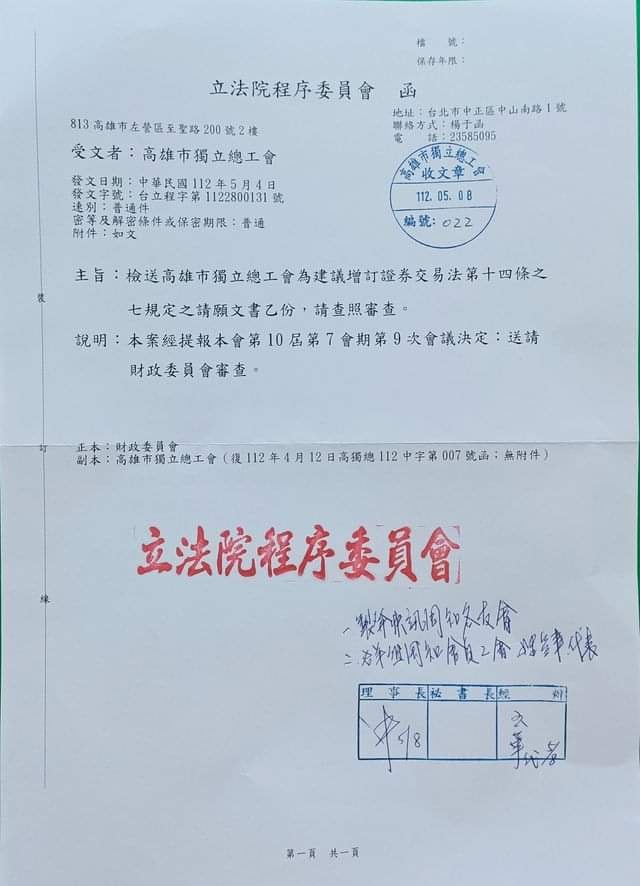 檔　　號：
保存年限：
立法院程序委員會　函
地址：台北市中正區中山南路1號
聯絡方式：楊于函
電　　話：23585095
813高雄市左營區至聖路200號2樓
受文者：高雄市獨立總工會
發文日期：中華民國112年5月4日
發文字號：台立程字第1122800131號
速別：普通件
密等及解密條件或保密期限：普通
附件：如文
高雄市獨立總工會
收文章
112.05.08
編號：022
主旨：檢送高雄市獨立總工會為建議增訂證券交易法第十四條之
七規定之請願文書乙份，請查照審查。
說明：本案經提報本會第10屆第7會期第9次會議決定：送請
財政委員會審查。
裝
訂
線
正本：財政委員會
副本：高雄市獨立總工會（復112年4月12日高獨總112中字第007號函；無附件）
立法院程序委員會
理事長 秘書長 經辦
5/8
第一頁　共一頁